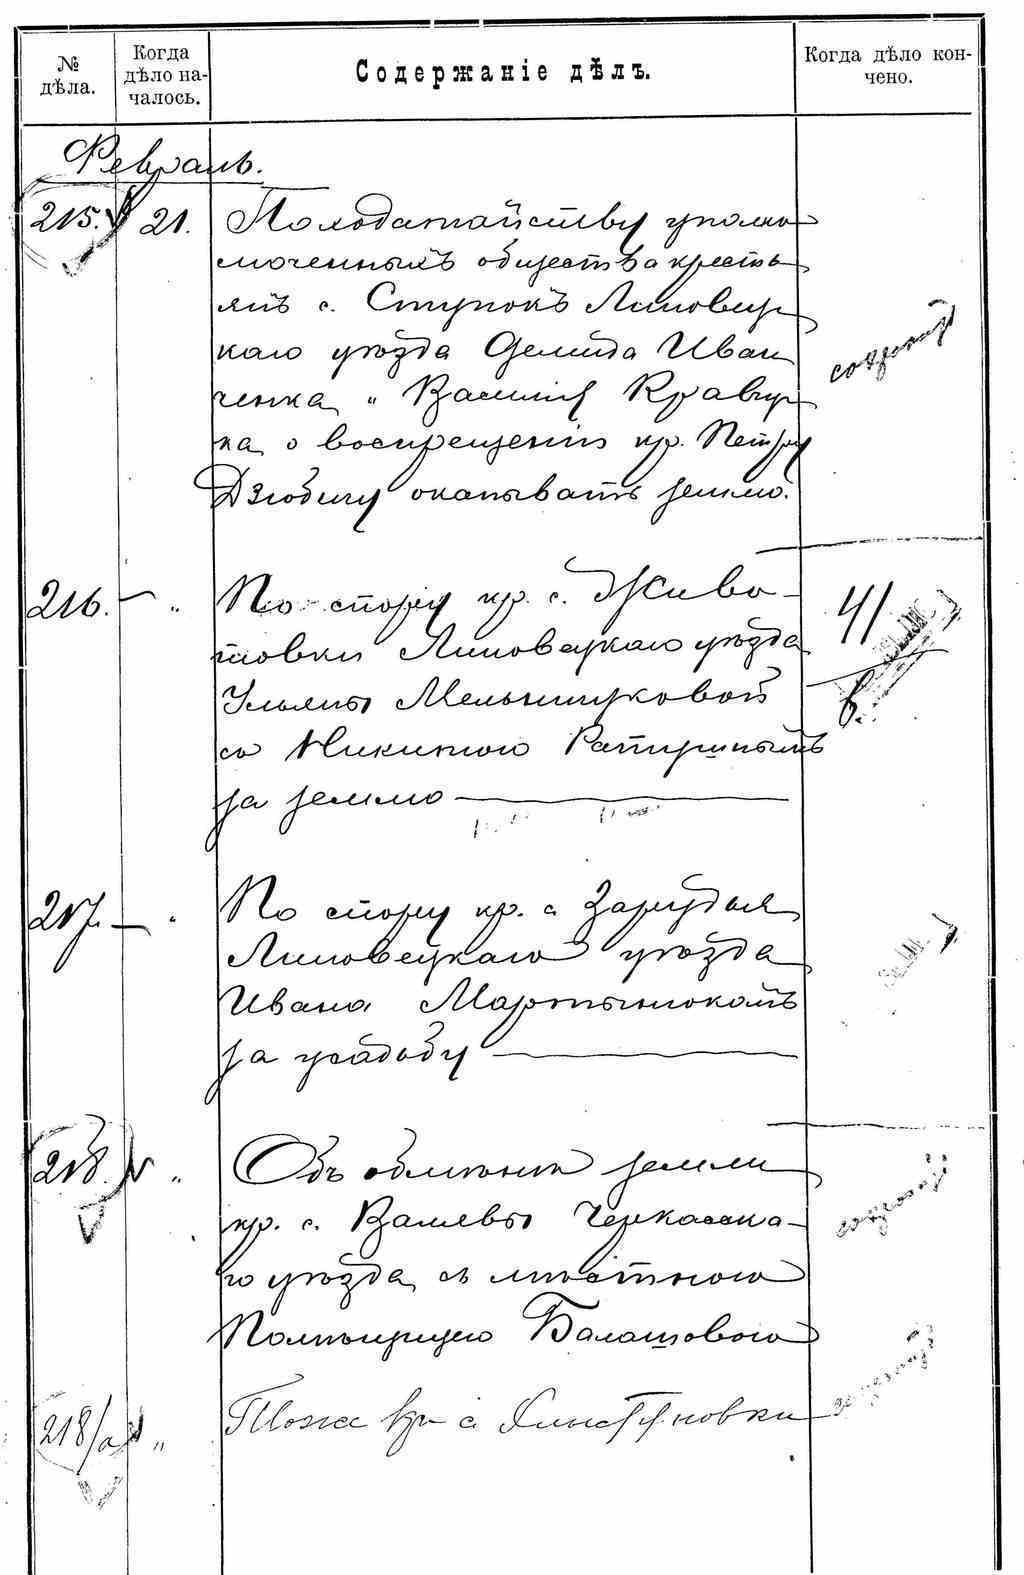 № дѣла.
Когда дѣло на-
чалось.
Содержаніе дѣлъ.
Когда дѣло кон-
чено.
Февраль.
215. 21. По ходатайству уполно
моченныхъ общества кресть
янъ с. Ступокъ Липовец
каго уѣзда Демида Иван
ченка и Василія Кравчу
ка о воспрещеніи кр. Петру
Дзюбичу окапывать землю.
216. — „ По спору кр. с. Живо-
товки Липовецкаго уѣзда
Ульяны Мельничуковой
со Никитою Ратушнымъ
за землю
41
217. — „ По спору кр. с Зарудья
Липовецкаго уѣзда
Ивана Мартынюкомъ
за усадьбу
218. „ Объ обмѣнѣ земли
кр. с. Валявы Черкасска-
го уѣзда съ мѣстною
Помѣщицею Балашовою
218/а „ Тоже кр с